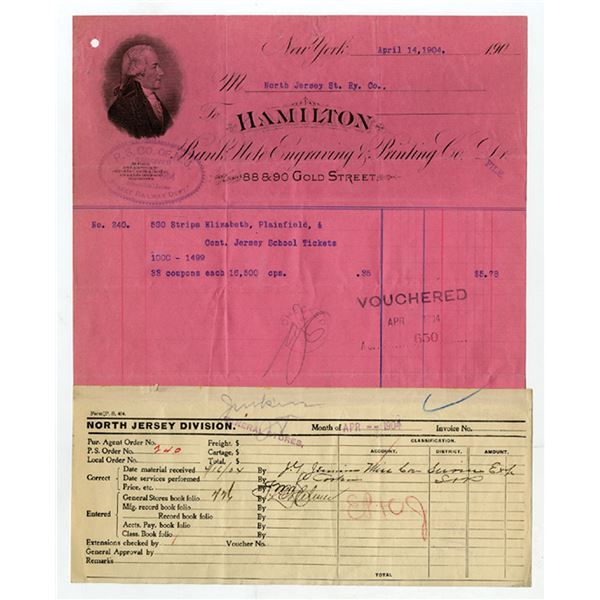 New York April 14,1904. 190
M North Jersey St. Ry. Co.,
To HAMILTON
Bank Note Engraving & Printing Co. Dr.
88 & 90 GOLD STREET.
P. S. CO. OF N. J.
RAILWAY DEPT.
FILE
No. 240. 500 Strips Elizabeth, Plainfield, &
Cent. Jersey School Tickets
1000 - 1499
33 coupons each 16,500 cps. .35 $5.78
VOUCHERED
APR 1904
650
Form P. S. 404.
NORTH JERSEY DIVISION.
GENERAL STORES,
Month of APR 1904
Invoice No.
Pur. Agent Order No.
P. S. Order No. 240
Local Order No.
Freight, $
Cartage, $
Total, $
CLASSIFICATION.
ACCOUNT. DISTRICT. AMOUNT.
Correct
Date material received 4/16/04 By
Date services performed By
Price, etc. By
Entered
General Stores book folio 726 By
Mfg. record book folio By
Record book folio By
Accts. Pay. book folio By
Class. Book folio By
Extensions checked by Voucher No.
General Approval by
Remarks
TOTAL